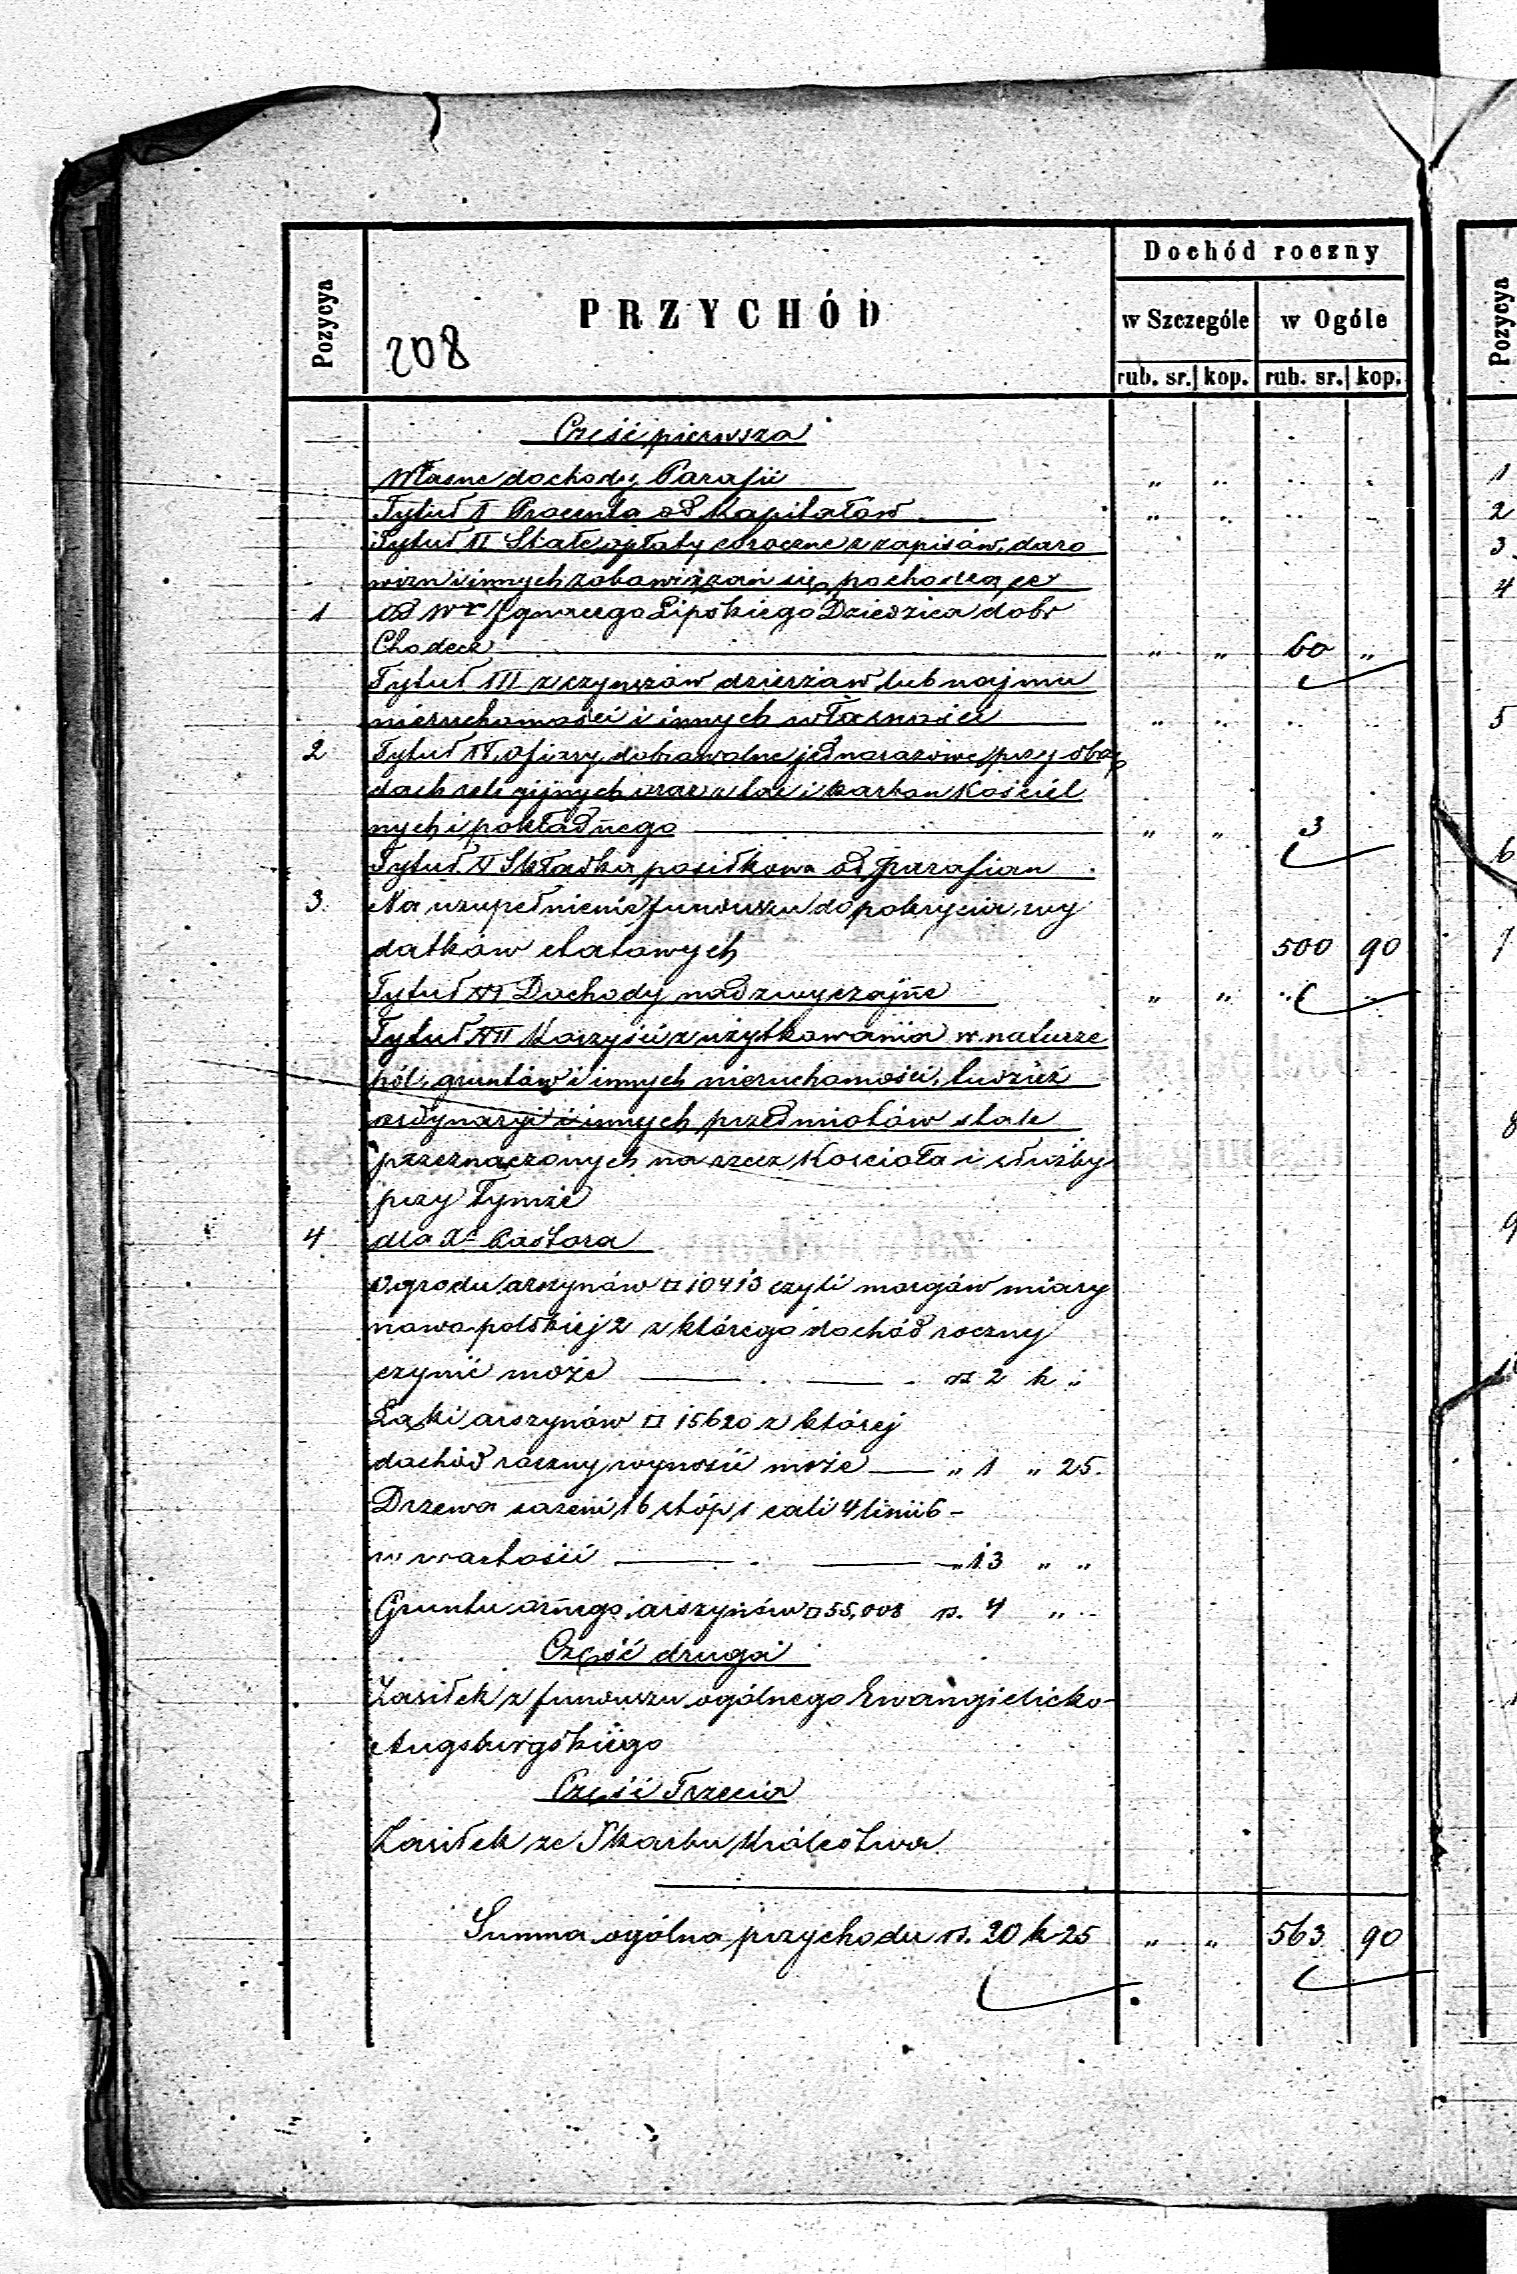 Dochód roczny
Pozycya
PRZYCHÓD
w Szczególe w Ogóle
208
rub. sr. kop. rub. sr. kop.
Część pierwsza
Własne dochody Parafii „ „ „ „
Tytuł I Procenta od Kapitałów „ „ „ „
Tytuł II Stałe opłaty coroczne z zapisów, daro
wizn i innych zobowiązań się pochodzące
1 Od Wr Ignacego Lipskiego Dziedzica dobr
Chodecz „ „ 60 „
Tytuł III z czynszów dzierżaw lub najmu
nieruchomości i innych własności „ „ „ „
2 Tytuł IV. Ofiary dobrowolne jednorazowe przy obrzę
dach religijnych oraz z tac i karbon Kościel
nych i pokładnego „ „ 3
Tytuł V Składka posiłkowa od parafian
3 Na uzupełnienie funduszu do pokrycia wy
datków etatowych 500 90
Tytuł VI Dochody nadzwyczajne „ „ „ „
Tytuł VII Korzyści z użytkowania w naturze
pól, gruntów i innych nieruchomości, tudzież
ordynaryi i innych przedmiotów stale
przeznaczonych na rzecz Kościoła i służby
przy Tymże
4 dla Xa Pastora
Ogrodu arszynów □ 10413 czyli morgów miary
nowo-polskiej 2 z którego dochód roczny
czynić może rs 2 k „
Łąki arszynów □ 15620 z której
dochód roczny wynosić może „ 1 „ 25.
Drzewa sażeni 16 stóp 1 cali 4 linii 6 –
w wartości „ 13 „ „
Gruntu ornego arszynów □ 55,008 rs. 4 „ „
Część druga
Zasiłek z funduszu ogólnego Ewangielicko-
Augsburgskiego
Część Trzecia
Zasiłek ze Skarbu Królestwa
Summa ogólna przychodu rs. 20 k 25 „ „ 563 90
Pozycya
1
2
3
4
5
6
7
8
9